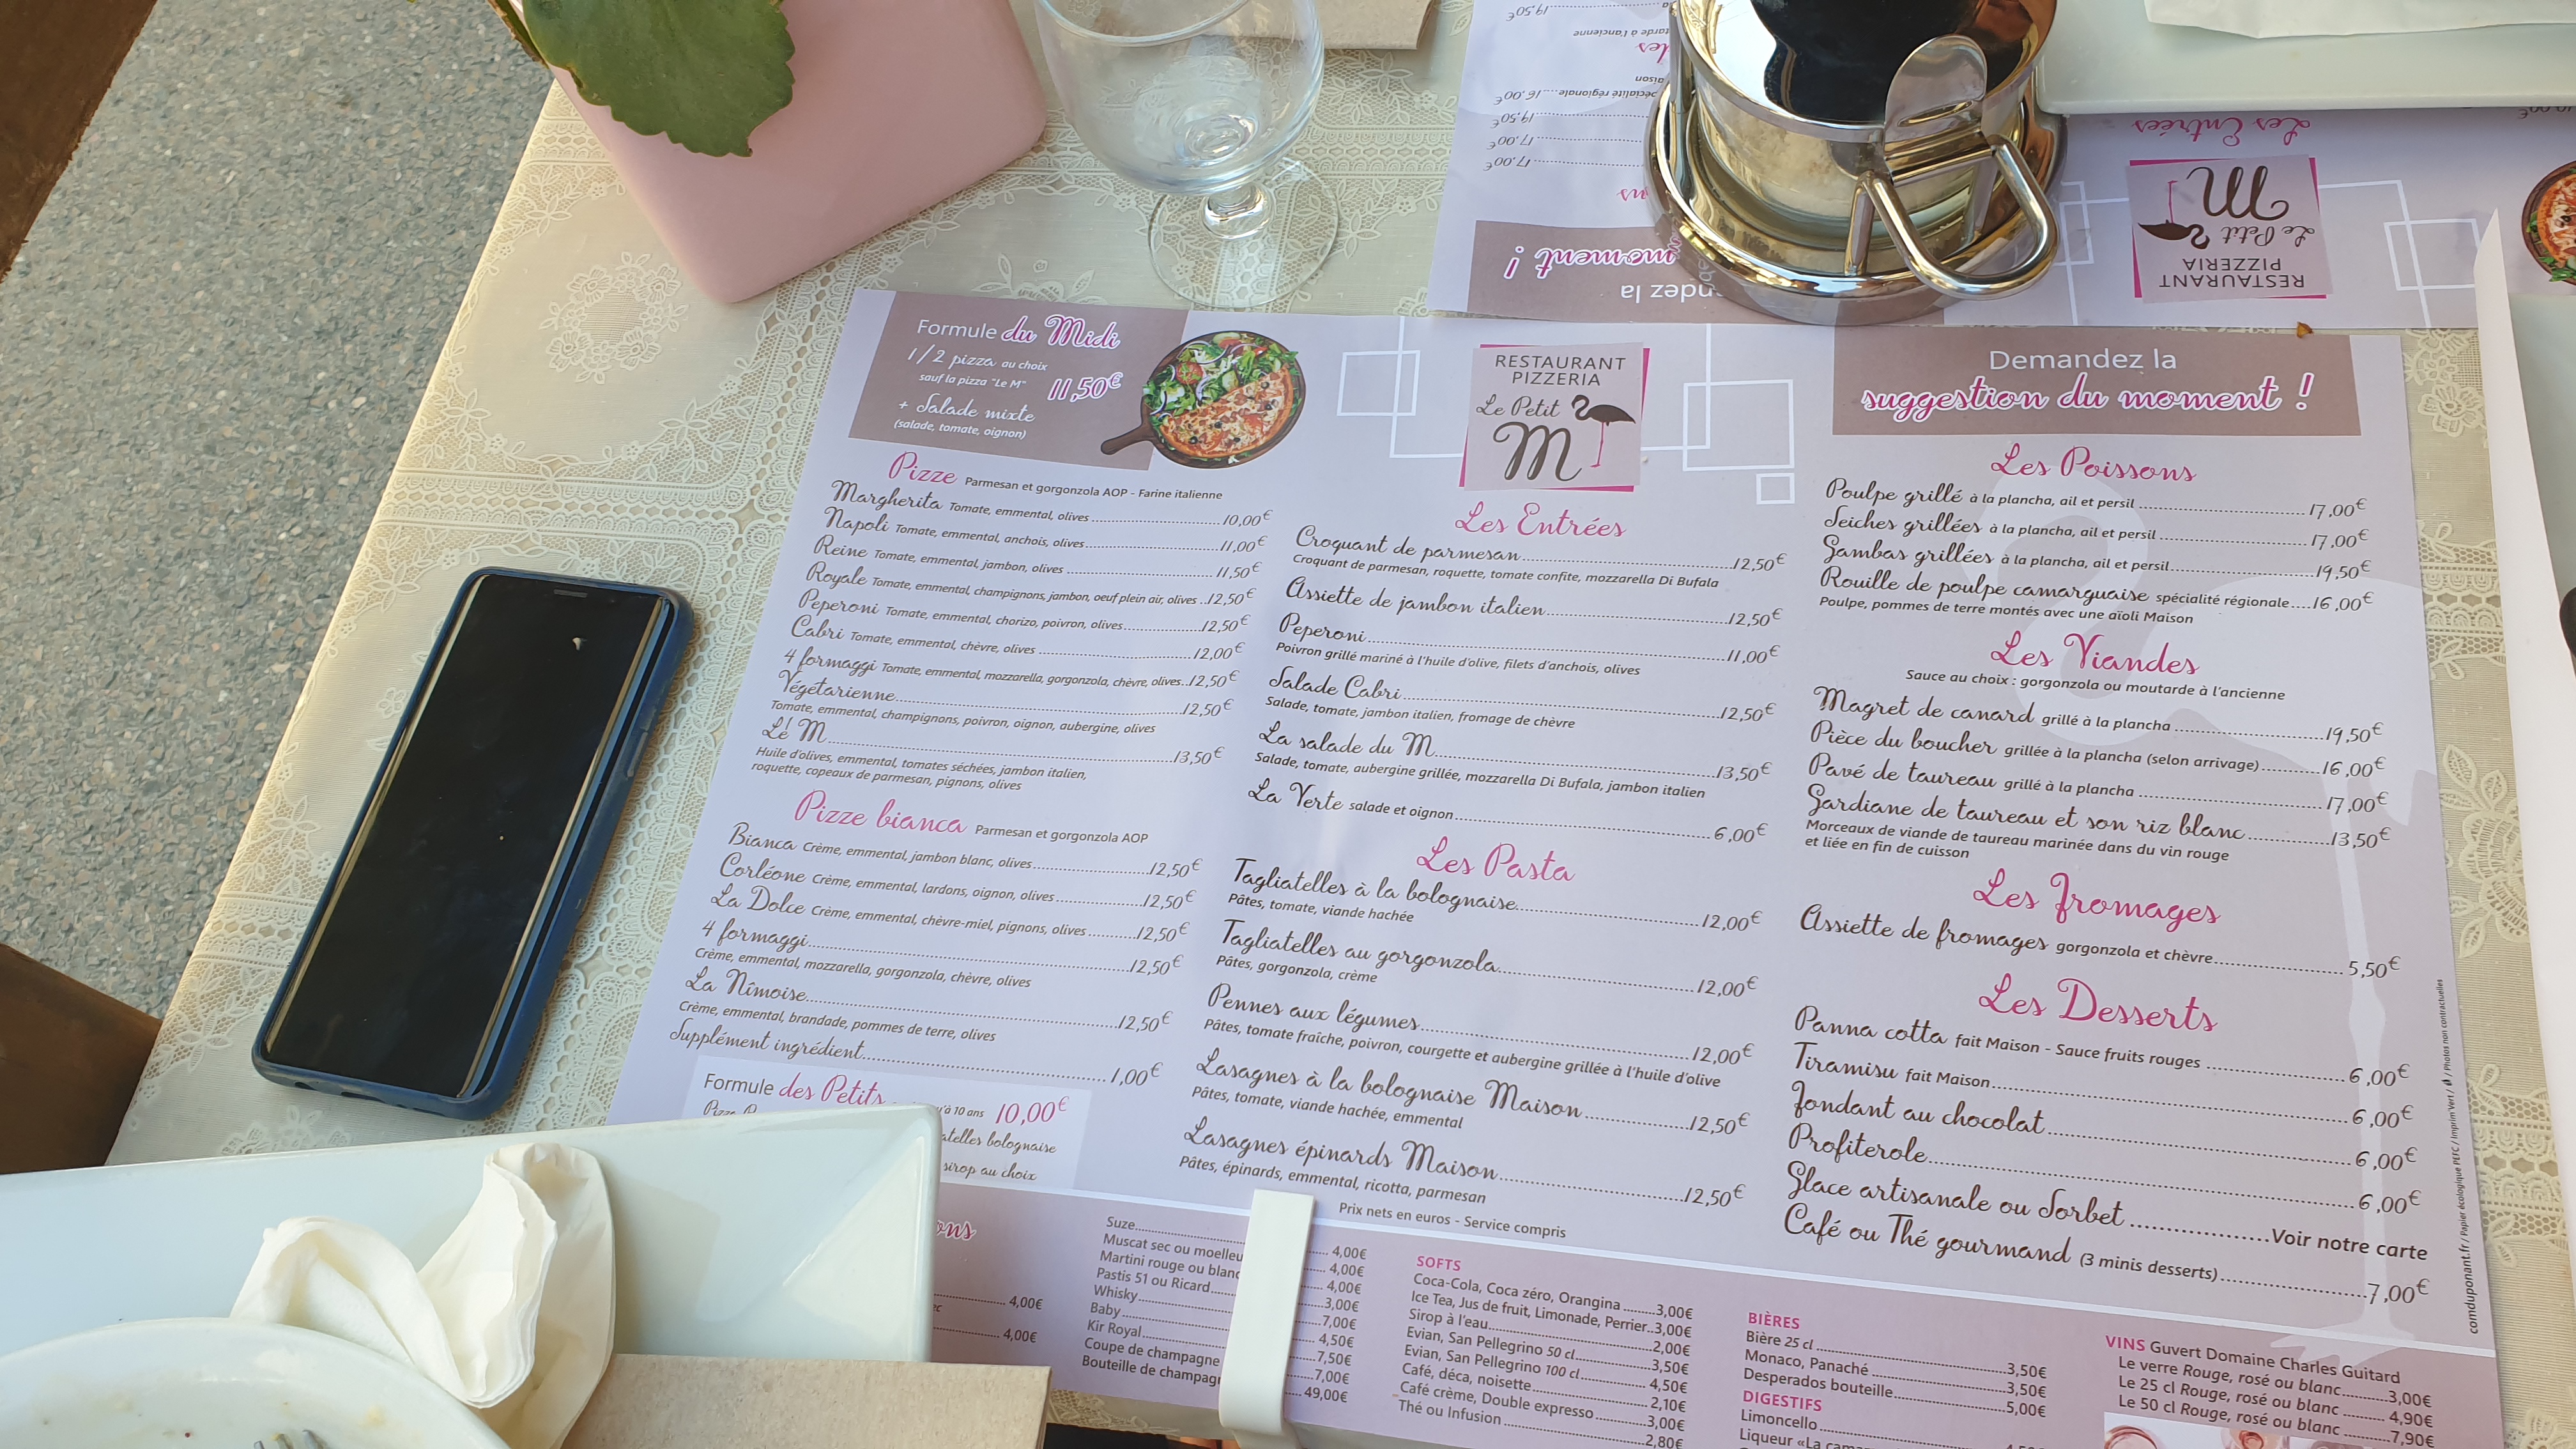 Formule du Midi
1/2 pizza au choix
sauf la pizza "Le M" 11,50€
+ Salade mixte
(salade, tomate, oignon)
Pizze Parmesan et gorgonzola AOP - Farine italienne
Margherita Tomate, emmental, olives 10,00€
Napoli Tomate, emmental, anchois, olives 11,00€
Reine Tomate, emmental, jambon, olives 11,50€
Royale Tomate, emmental, champignons, jambon, oeuf plein air, olives 12,50€
Peperoni Tomate, emmental, chorizo, poivron, olives 12,50€
Cabri Tomate, emmental, chèvre, olives 12,00€
4 formaggi Tomate, emmental, mozzarella, gorgonzola, chèvre, olives 12,50€
Végétarienne 12,50€
Tomate, emmental, champignons, poivron, oignon, aubergine, olives
Le M 13,50€
Huile d'olives, emmental, tomates séchées, jambon italien,
roquette, copeaux de parmesan, pignons, olives
Pizze bianca Parmesan et gorgonzola AOP
Bianca Crème, emmental, jambon blanc, olives 12,50€
Corléone Crème, emmental, lardons, oignon, olives 12,50€
La Dolce Crème, emmental, chèvre-miel, pignons, olives 12,50€
4 formaggi 12,50€
Crème, emmental, mozzarella, gorgonzola, chèvre, olives
La Nîmoise 12,50€
Crème, emmental, brandade, pommes de terre, olives
Supplément ingrédient 1,00€
Formule des Petits 10 ans 10,00€
bolognaise
sirop au choix
RESTAURANT
PIZZERIA
Le Petit
M
Les Entrées
Croquant de parmesan 12,50€
Croquant de parmesan, roquette, tomate confite, mozzarella Di Bufala
Assiette de jambon italien 12,50€
Peperoni 11,00€
Poivron grillé mariné à l'huile d'olive, filets d'anchois, olives
Salade Cabri 12,50€
Salade, tomate, jambon italien, fromage de chèvre
La salade du M 13,50€
Salade, tomate, aubergine grillée, mozzarella Di Bufala, jambon italien
La Verte salade et oignon 6,00€
Les Pasta
Tagliatelles à la bolognaise 12,00€
Pâtes, tomate, viande hachée
Tagliatelles au gorgonzola 12,00€
Pâtes, gorgonzola, crème
Pennes aux légumes 12,00€
Pâtes, tomate fraîche, poivron, courgette et aubergine grillée à l'huile d'olive
Lasagnes à la bolognaise Maison 12,50€
Pâtes, tomate, viande hachée, emmental
Lasagnes épinards Maison 12,50€
Pâtes, épinards, emmental, ricotta, parmesan
Prix nets en euros - Service compris
Demandez la
suggestion du moment !
Les Poissons
Poulpe grillé à la plancha, ail et persil 17,00€
Seiches grillées à la plancha, ail et persil 17,00€
Gambas grillées à la plancha, ail et persil 19,50€
Rouille de poulpe camarguaise spécialité régionale 16,00€
Poulpe, pommes de terre montés avec une aïoli Maison
Les Viandes
Sauce au choix : gorgonzola ou moutarde à l'ancienne
Magret de canard grillé à la plancha 19,50€
Pièce du boucher grillée à la plancha (selon arrivage) 16,00€
Pavé de taureau grillé à la plancha 17,00€
Gardiane de taureau et son riz blanc 13,50€
Morceaux de viande de taureau marinée dans du vin rouge
et liée en fin de cuisson
Les Fromages
Assiette de fromages gorgonzola et chèvre 5,50€
Les Desserts
Panna cotta fait Maison - Sauce fruits rouges 6,00€
Tiramisu fait Maison 6,00€
Fondant au chocolat 6,00€
Profiterole 6,00€
Glace artisanale ou Sorbet Voir notre carte
Café ou Thé gourmand (3 minis desserts) 7,00€
camduponant.fr / Papier écologique PEFC / Imprim'Vert / Photos non contractuelles
4,00€
4,00€
Suze 4,00€
Muscat sec ou moelleu 4,00€
Martini rouge ou blanc 4,00€
Pastis 51 ou Ricard 3,00€
Whisky 7,00€
Baby 4,50€
Kir Royal 7,50€
Coupe de champagne 7,00€
Bouteille de champag 49,00€
SOFTS
Coca-Cola, Coca zéro, Orangina 3,00€
Ice Tea, Jus de fruit, Limonade, Perrier 3,00€
Sirop à l'eau 2,00€
Evian, San Pellegrino 50 cl 3,50€
Evian, San Pellegrino 100 cl 4,50€
Café, déca, noisette 2,10€
Café crème, Double expresso 3,00€
Thé ou Infusion 2,80€
BIÈRES
Bière 25 cl 3,50€
Monaco, Panaché 3,50€
Desperados bouteille 5,00€
DIGESTIFS
Limoncello
Liqueur «La cama
VINS Guvert Domaine Charles Guitard
Le verre Rouge, rosé ou blanc 3,00€
Le 25 cl Rouge, rosé ou blanc 4,90€
Le 50 cl Rouge, rosé ou blanc 7,90€
Les Entrées
RESTAURANT
PIZZERIA
Le Petit
M
moment !
19,50€
tarde à l'ancienne
spécialité régionale 16,00€
19,50€
17,00€
17,00€